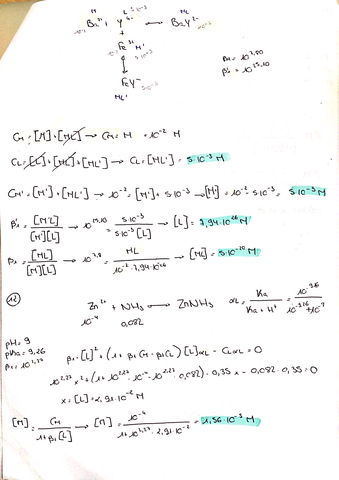 M L 5·10⁻³ ML
Ba²⁺ + Y⁴⁻ → BaY²⁻
+
Fe³⁺ M'
FeY⁻ 5·10⁻³
ML'
β₁ = 10⁷·⁸⁰
β' = 10²⁵·¹⁰
CM = [M] + [ML] → CM = M = 10⁻² M
CL = [L] + [ML] + [ML'] → CL = [ML'] = 5·10⁻³ M
CM' = [M'] + [ML'] → 10⁻² = [M'] + 5·10⁻³ → [M'] = 10⁻² - 5·10⁻³ = 5·10⁻³ M
β' = [M'L] / [M'][L] → 10²⁵·¹⁰ = 5·10⁻³ / 5·10⁻³ [L] → [L] = 7,94·10⁻²⁶ M
β₁ = [ML] / [M][L] → 10⁷·⁸ = ML / 10⁻²·7,94·10⁻²⁶ → [ML] = 5·10⁻²⁰ M
12
Zn²⁺ + NH₃ → ZnNH₃
αL = Ka / Ka + H⁺ = 10⁻⁹·²⁶ / 10⁻⁹·²⁶ + 10⁻⁹
10⁻⁴ 0,082
pH = 9
pKa = 9,26
β₁ = 10²·²⁷
β₁·[L]² + (1 + β₁CM - β₁CL)[L]αL - CLαL = 0
10²·²⁷ x² + (1 + 10²·²⁷·10⁻⁴ - 10²·²⁷·0,082)·0,35 x - 0,082·0,35 = 0
x = [L] = 2,91·10⁻² M
[M] = CM / 1 + β₁[L] → [M] = 10⁻⁴ / 1 + 10²·²⁷·2,91·10⁻² = 1,56·10⁻⁵ M